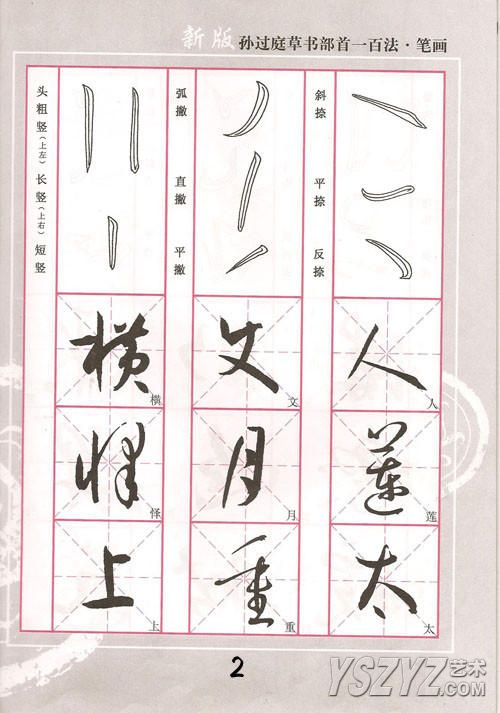 新版 孙过庭草书部首一百法·笔画
头粗竖(上左) 长竖(上右) 短竖
弧撇 直撇 平撇
斜捺 平捺 反捺
横 横
文 文
人 人
怿 怿
月 月
莲 莲
上 上
重 重
太 太
2
YSZYZ艺术
.com